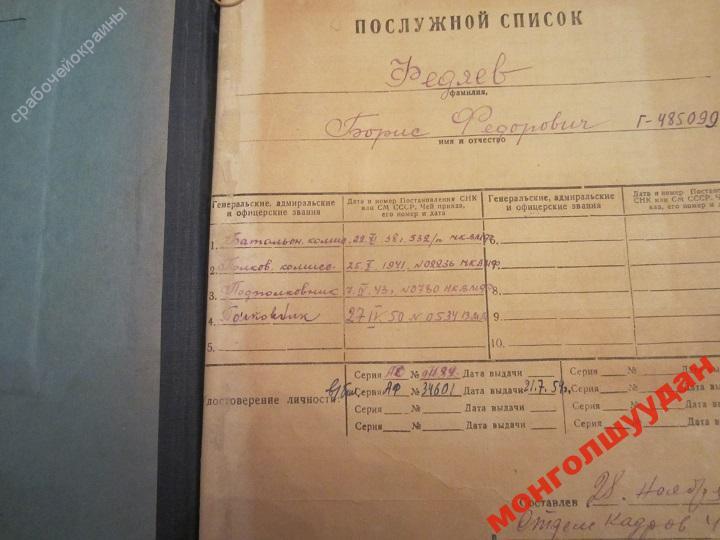 срабочейокраины
ПОСЛУЖНОЙ СПИСОК
Федяев
фамилия,
Борис Федорович Г-485099
имя и отчество
Генеральские, адмиральские и офицерские звания
Дата и номер Постановления СНК или СМ СССР. Чей приказ, его номер и дата
Генеральские, адмиральские и офицерские звания
Дата и номер Постановления СНК или СМ СССР. Чей приказ, его номер
1. Батальон. комис. 22. VI 38г 532/п НКВМФ
2. Полков. комисс. 25. X 1941, №02236 НКВМФ
3. Подполковник 7. IV. 43г №0780 НКВМФ
4. Полковник 27 IV. 50 № 0534 ВММ
5.
6.
7.
8.
9.
10.
достоверение личности:
Серия № Дата выдачи
Серия АФ № 34601 Дата выдачи 21.7.54г.
Серия № Дата выдачи
Серия № Дата выдачи
Серия № Дата выд
Серия № Дата
Серия № Дата
Серия № Дата
монголшуудан
Составлен 28. Ноября
в Отделе Кадров